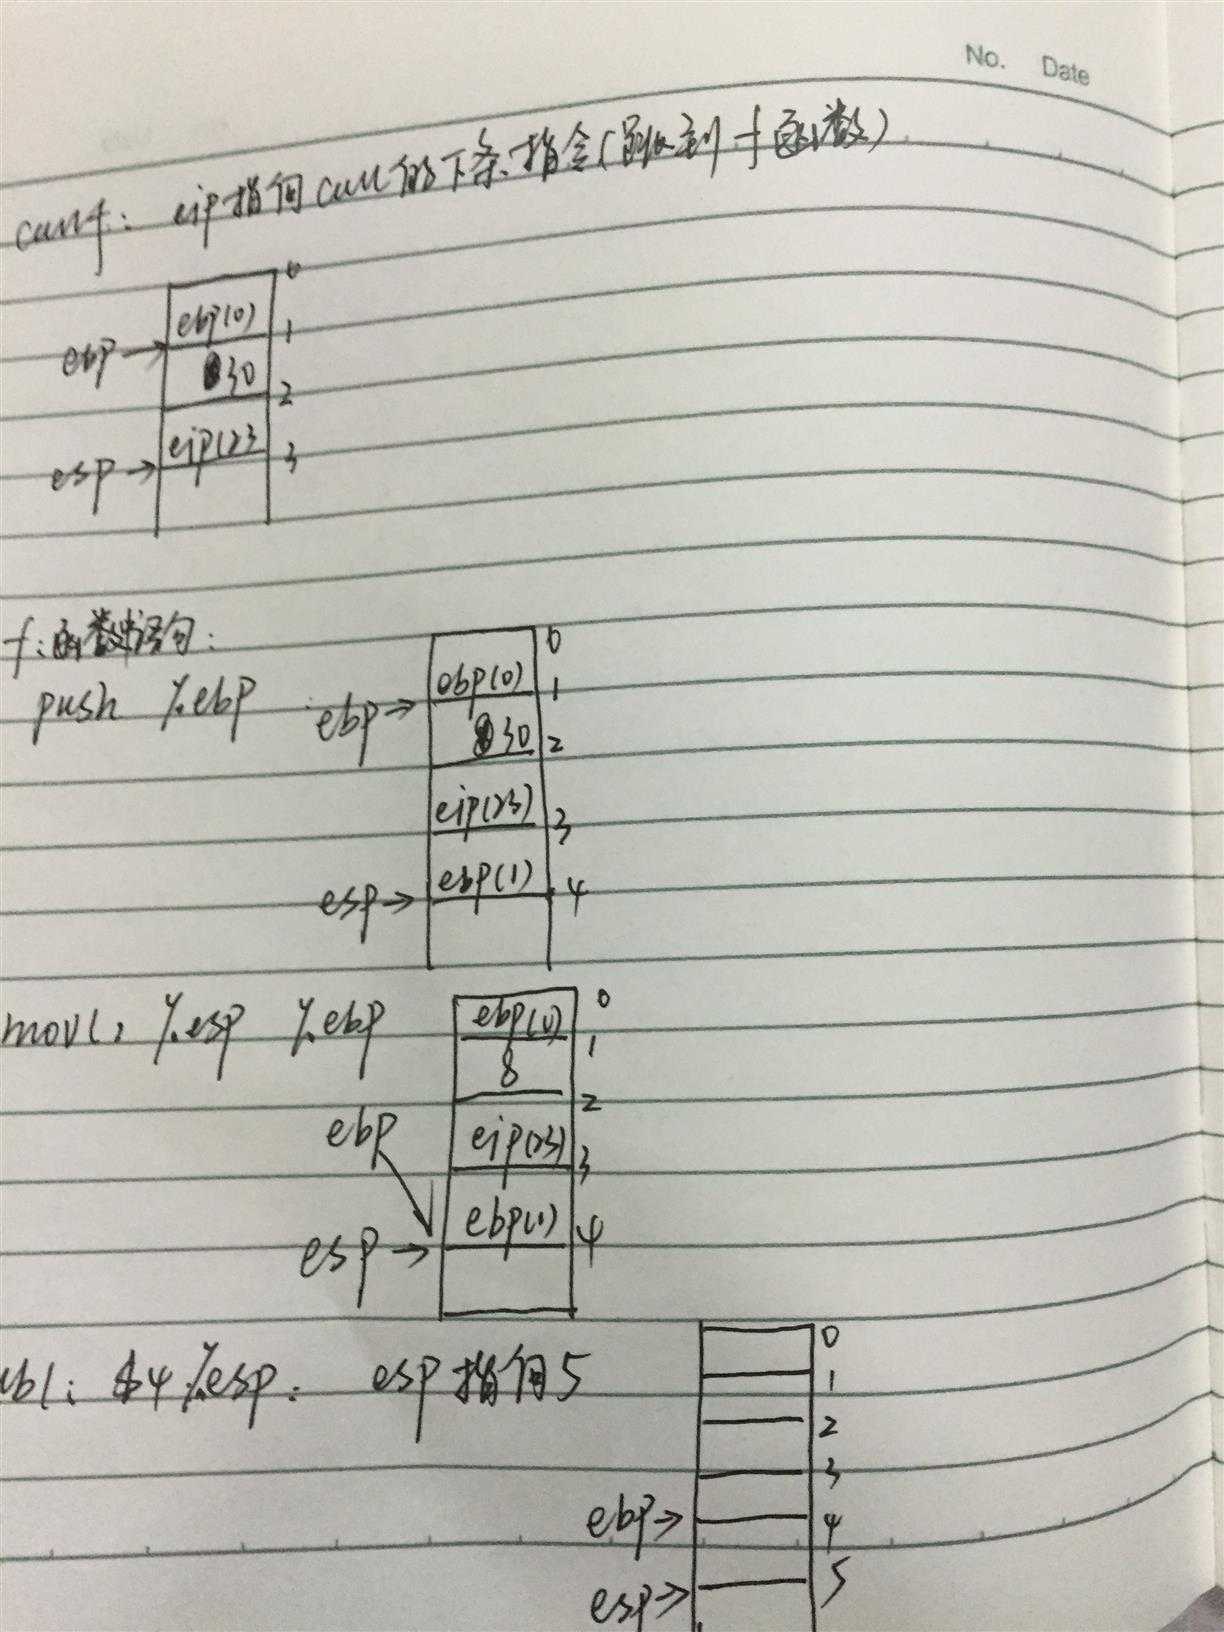 No. Date
call f: eip指向call的下条指令(跳到f函数)
0
ebp(0)
ebp→ 1
30
2
eip(23
esp→ 3
f:函数语句:
push %ebp
0
ebp(0)
ebp→ 1
30
2
eip(23)
3
ebp(1)
esp→ 4
movl: %esp %ebp
0
ebp(0)
1
8
2
ebp eip(23)
3
ebp(1)
esp→ 4
ubl: $4 %esp: esp指向5
0
1
2
3
ebp→ 4
esp→ 5